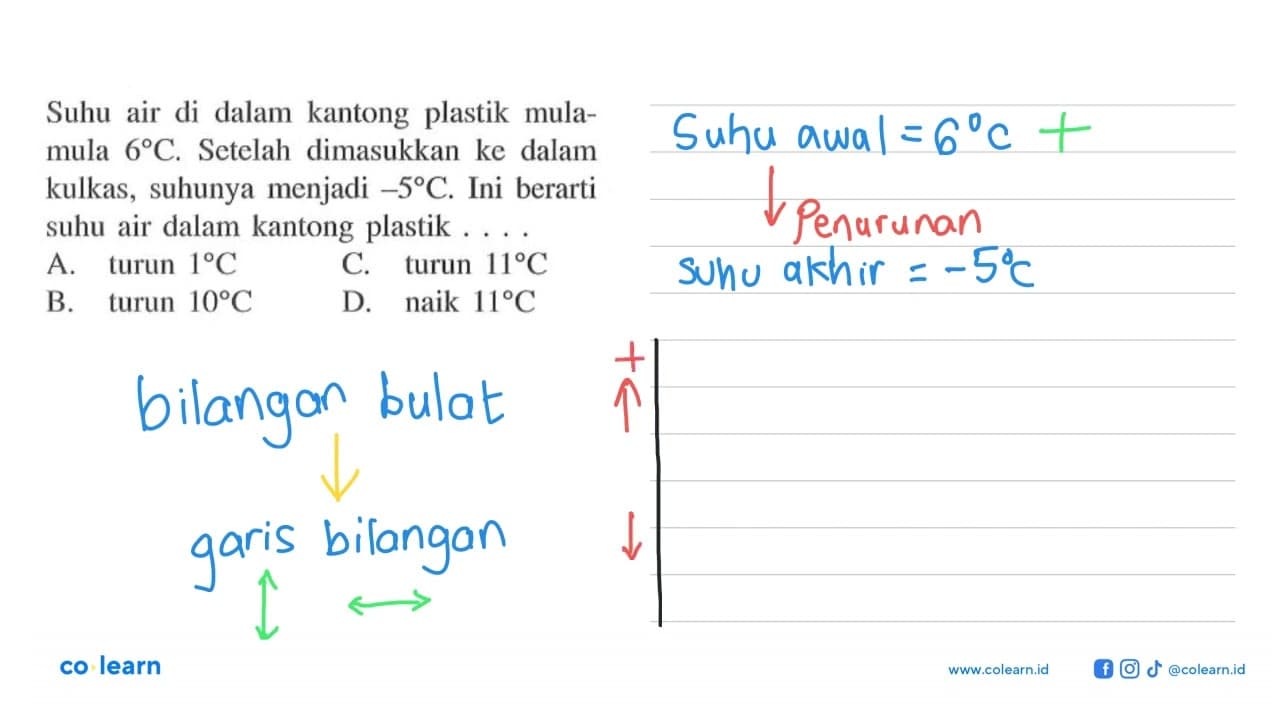 Suhu air di dalam kantong plastik mula-
mula 6°C. Setelah dimasukkan ke dalam
kulkas, suhunya menjadi –5°C. Ini berarti
suhu air dalam kantong plastik . . . .
A. turun 1°C C. turun 11°C
B. turun 10°C D. naik 11°C
bilangan bulat
garis bilangan
Suhu awal = 6°C +
Penurunan
suhu akhir = -5°C
+
co learn
www.colearn.id
@colearn.id